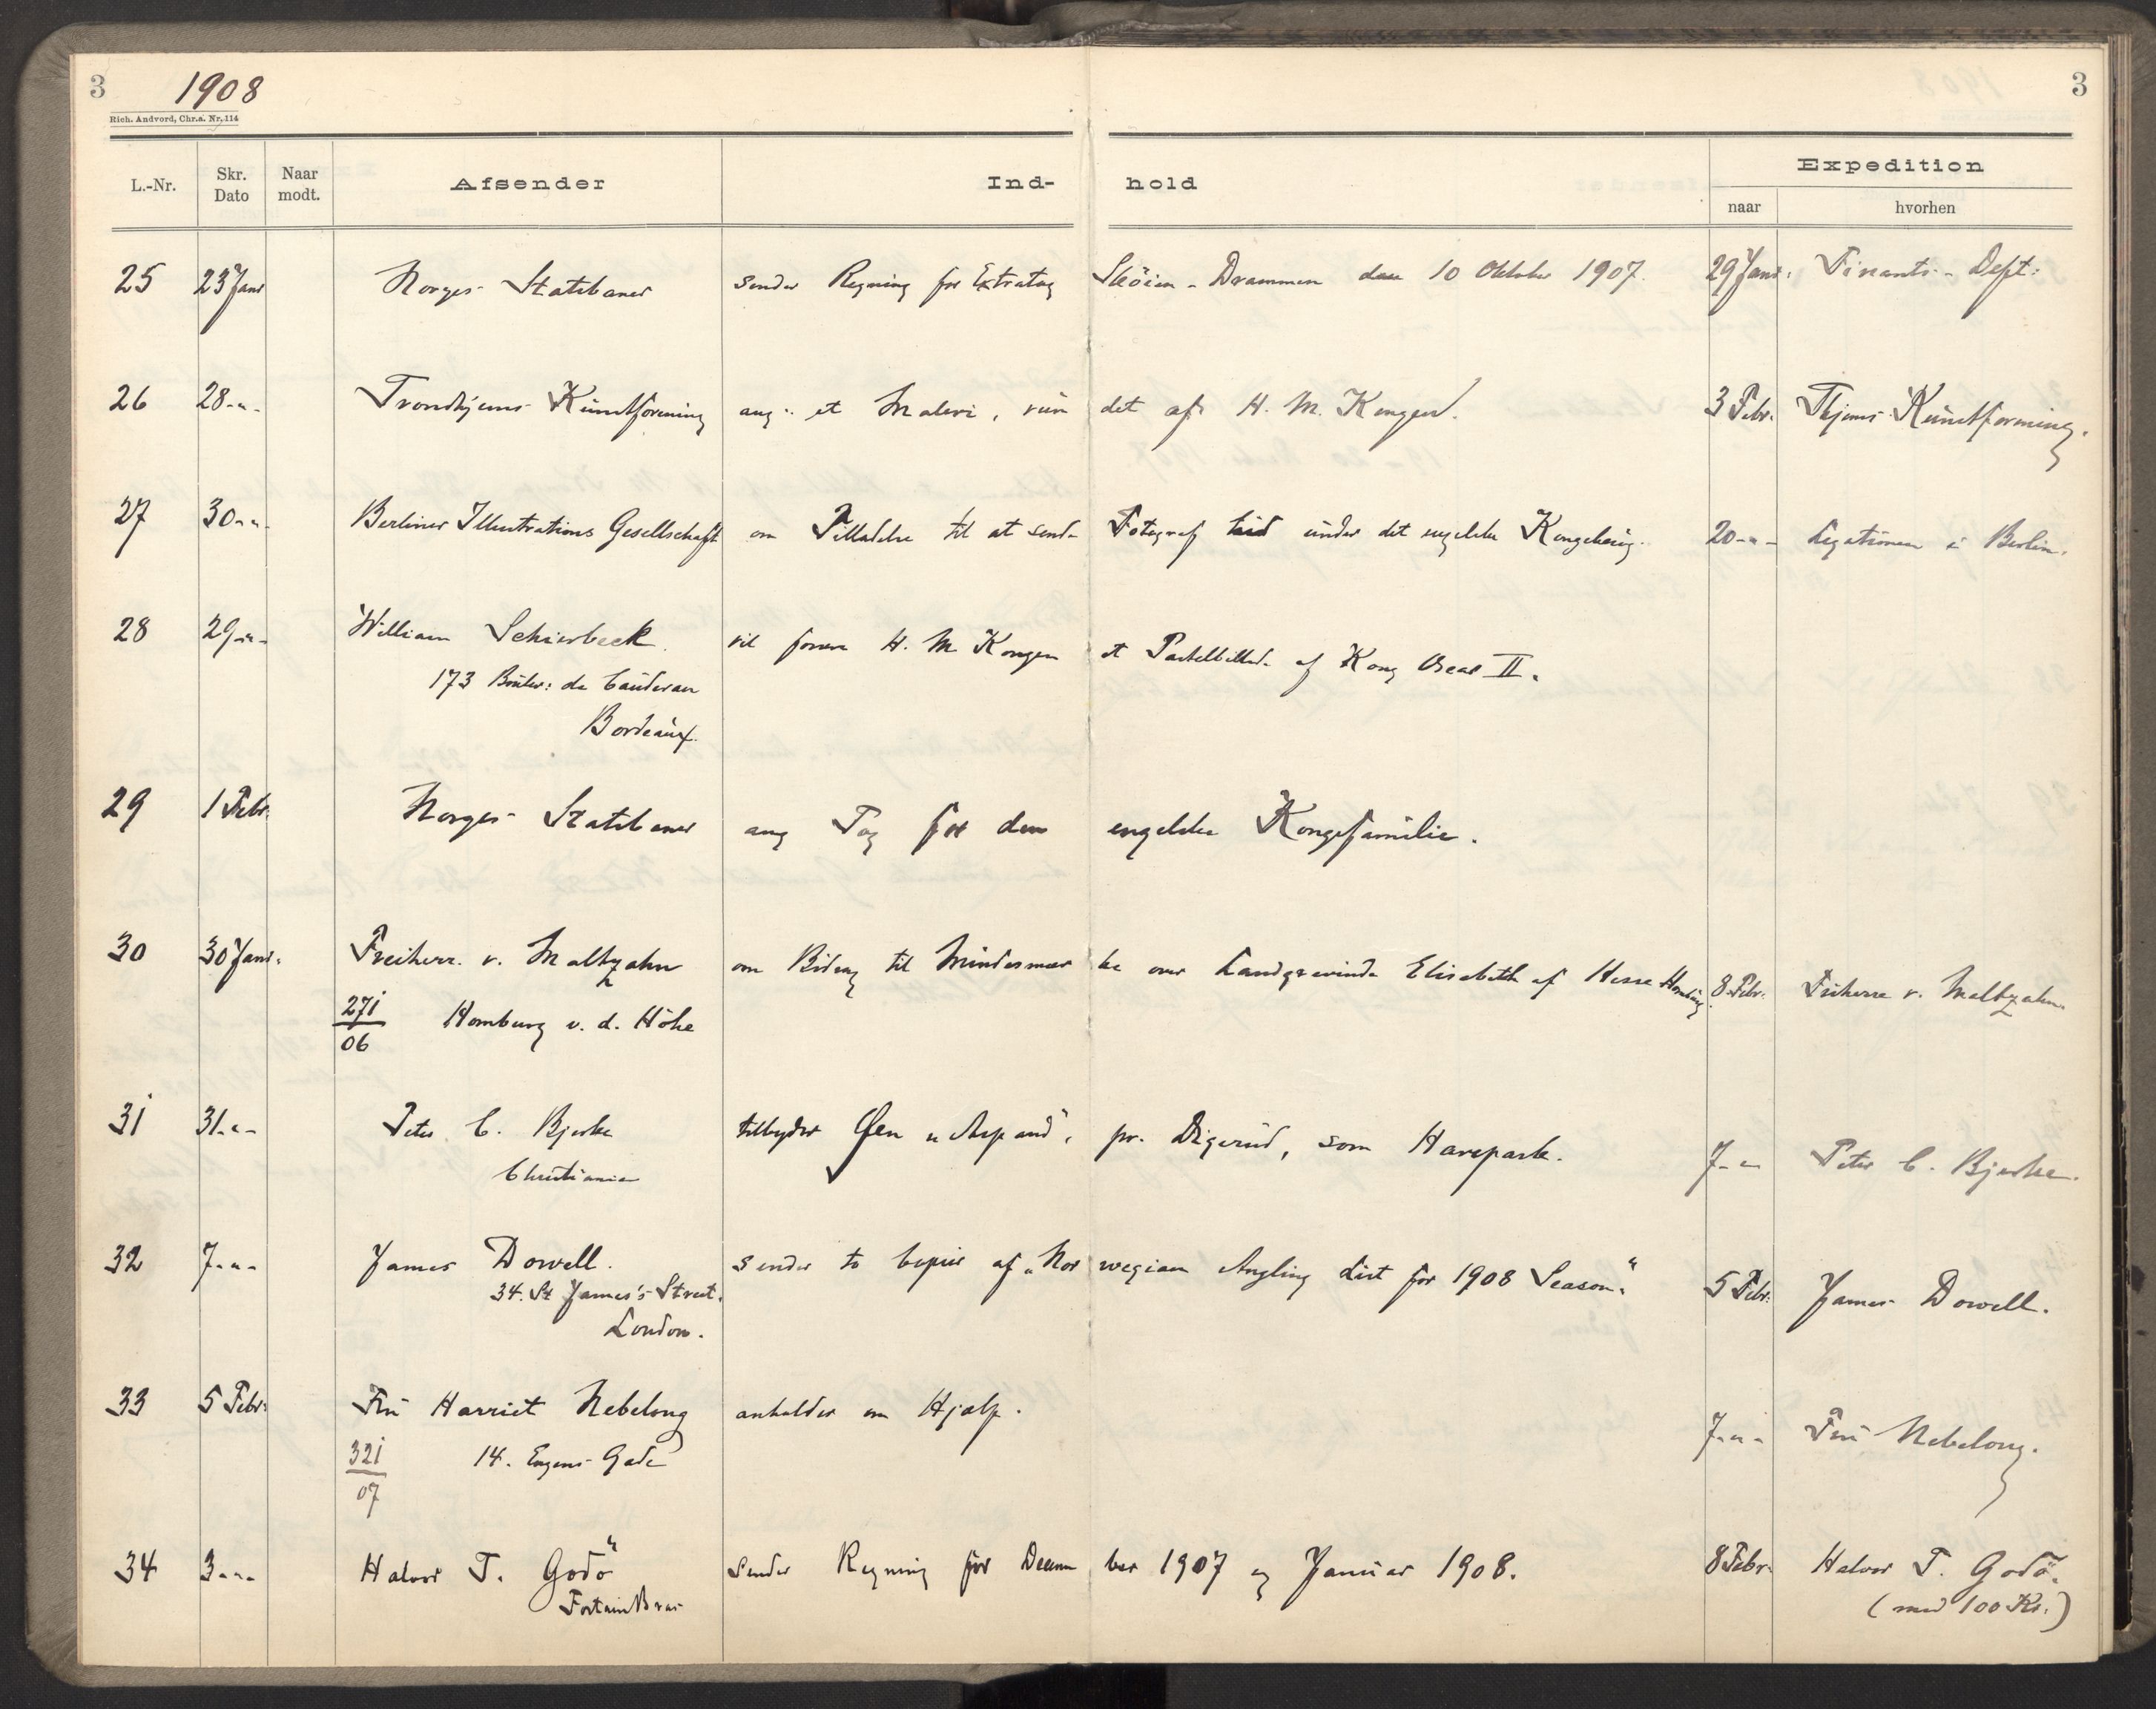 3 1908 3
Rich. Andvord, Chr.a. Nr. 114
L.-Nr. Skr. Dato Naar modt. Afsender Ind- hold Expedition
naar hvorhen
25 23 Janr Norges Statsbaner sender Regning for Extratog Sköien - Drammen den 10 Oktober 1907. 29 Janr: Finants-Dept:
26 28-"- Trondhjems Kunstforening ang: et Maleri, vün det af H. M. Kongen. 3 Febr. Thjems Kunstforening.
27 30-"- Berliner Illustrations Gesellschaft om Tilladelse til at sende Fotograf hid under det engelske Kongebesög. 20-"- Legationen i Berlin.
28 29-"- William Schierbeck. vil forære H. M. Kongen et Pastelbillede af Kong Oscar II.
173 Boulev: de Cauderan
Bordeaux.
29 1 Febr: Norges Statsbaner ang Tog for den engelske Kongefamilie.
30 30 Janr. Freiherr. v. Maltzahn om Bidrag til Mindesmær ke over Landgrevinde Elisabeth af Hesse Homburg. 8 Febr. Friherre v. Maltzahn.
271/06 Homburg v. d. Höhe
31 31-"- Peter C. Bjerke tilbyder Öen "Aspond", pr. Digerud, som Harepark. 7-"- Peter C. Bjerke.
Christiania
32 7-"- James Dowell. sender to Copier af "Nor wegian Angling List for 1908 Season." 5 Febr: James Dowell.
34. St James's Street.
London.
33 5 Febr: Fru Harriet Nebelong anholder om Hjælp. 7-"- Fru Nebelong.
321/07 14. Eugens Gade
34 3-"- Halvor T. Godö sender Regning for Decem ber 1907 og Januar 1908. 8 Febr. Halvor T. Godö.
(med 100 Kr.)